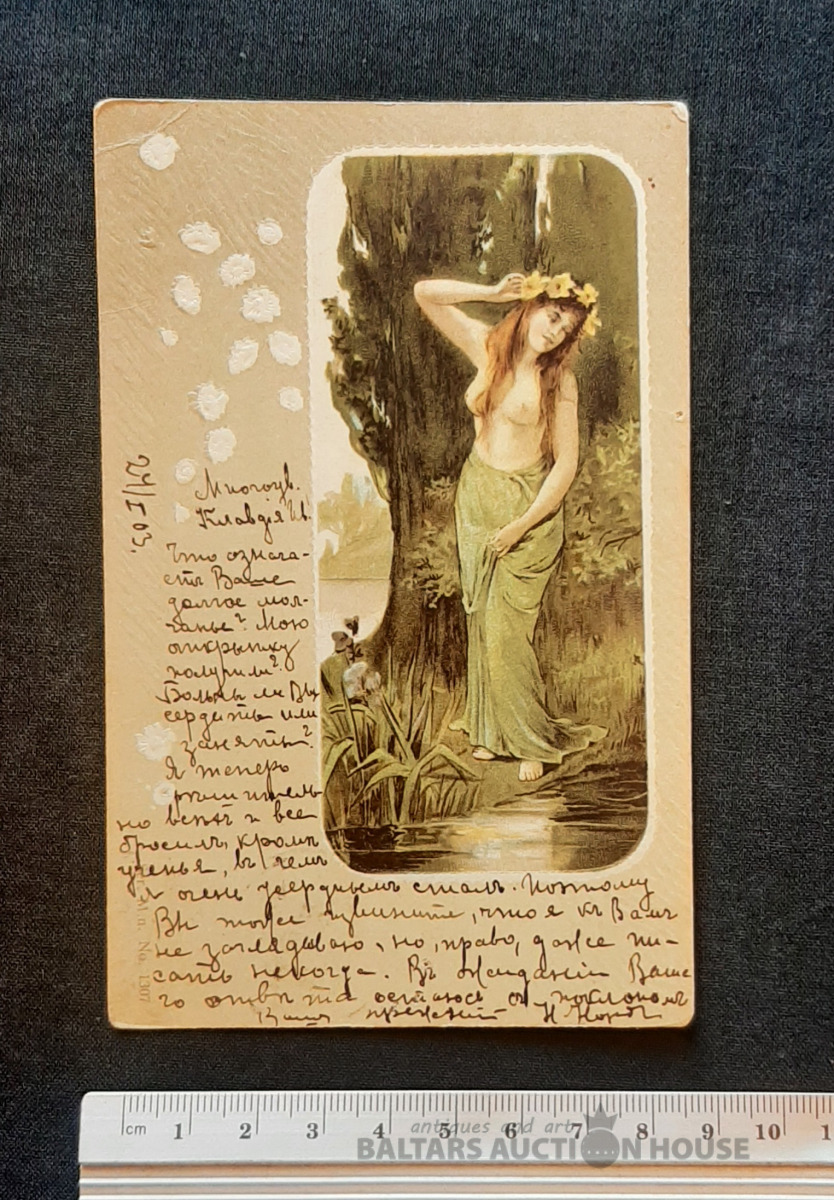 24/I 03.
Многоув.
Клавдiя Ив.
Что означа-
етъ Ваше
долгое мол-
чанье? Мою
открытку
получили?
Больны ли Вы
сердиты или
заняты?
Я теперь
рѣшитель-
но всѣхъ и все
бросилъ, кромѣ
ученья, въ чемъ
я очень усерднымъ сталъ. Поэтому
Вы тоже извините, что я къ Вамъ
не заглядываю, но, право, даже пи-
сать некогда. Въ ожиданiи Ваше-
го отвѣта остаюсь съ поклономъ
Вашъ прежнiй Н.
Min. No. 1307
cm 1 2 3 4 5 6 7 8 9 10 1
antiques and art
BALTARS AUCTION HOUSE